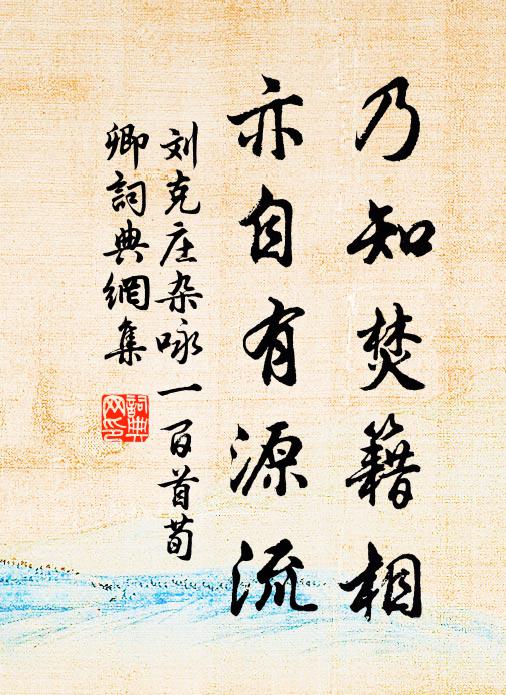 乃知焚籍相
亦自有源流
刘克庄杂咏一百首荀
卿詞典網集
詞典
网印